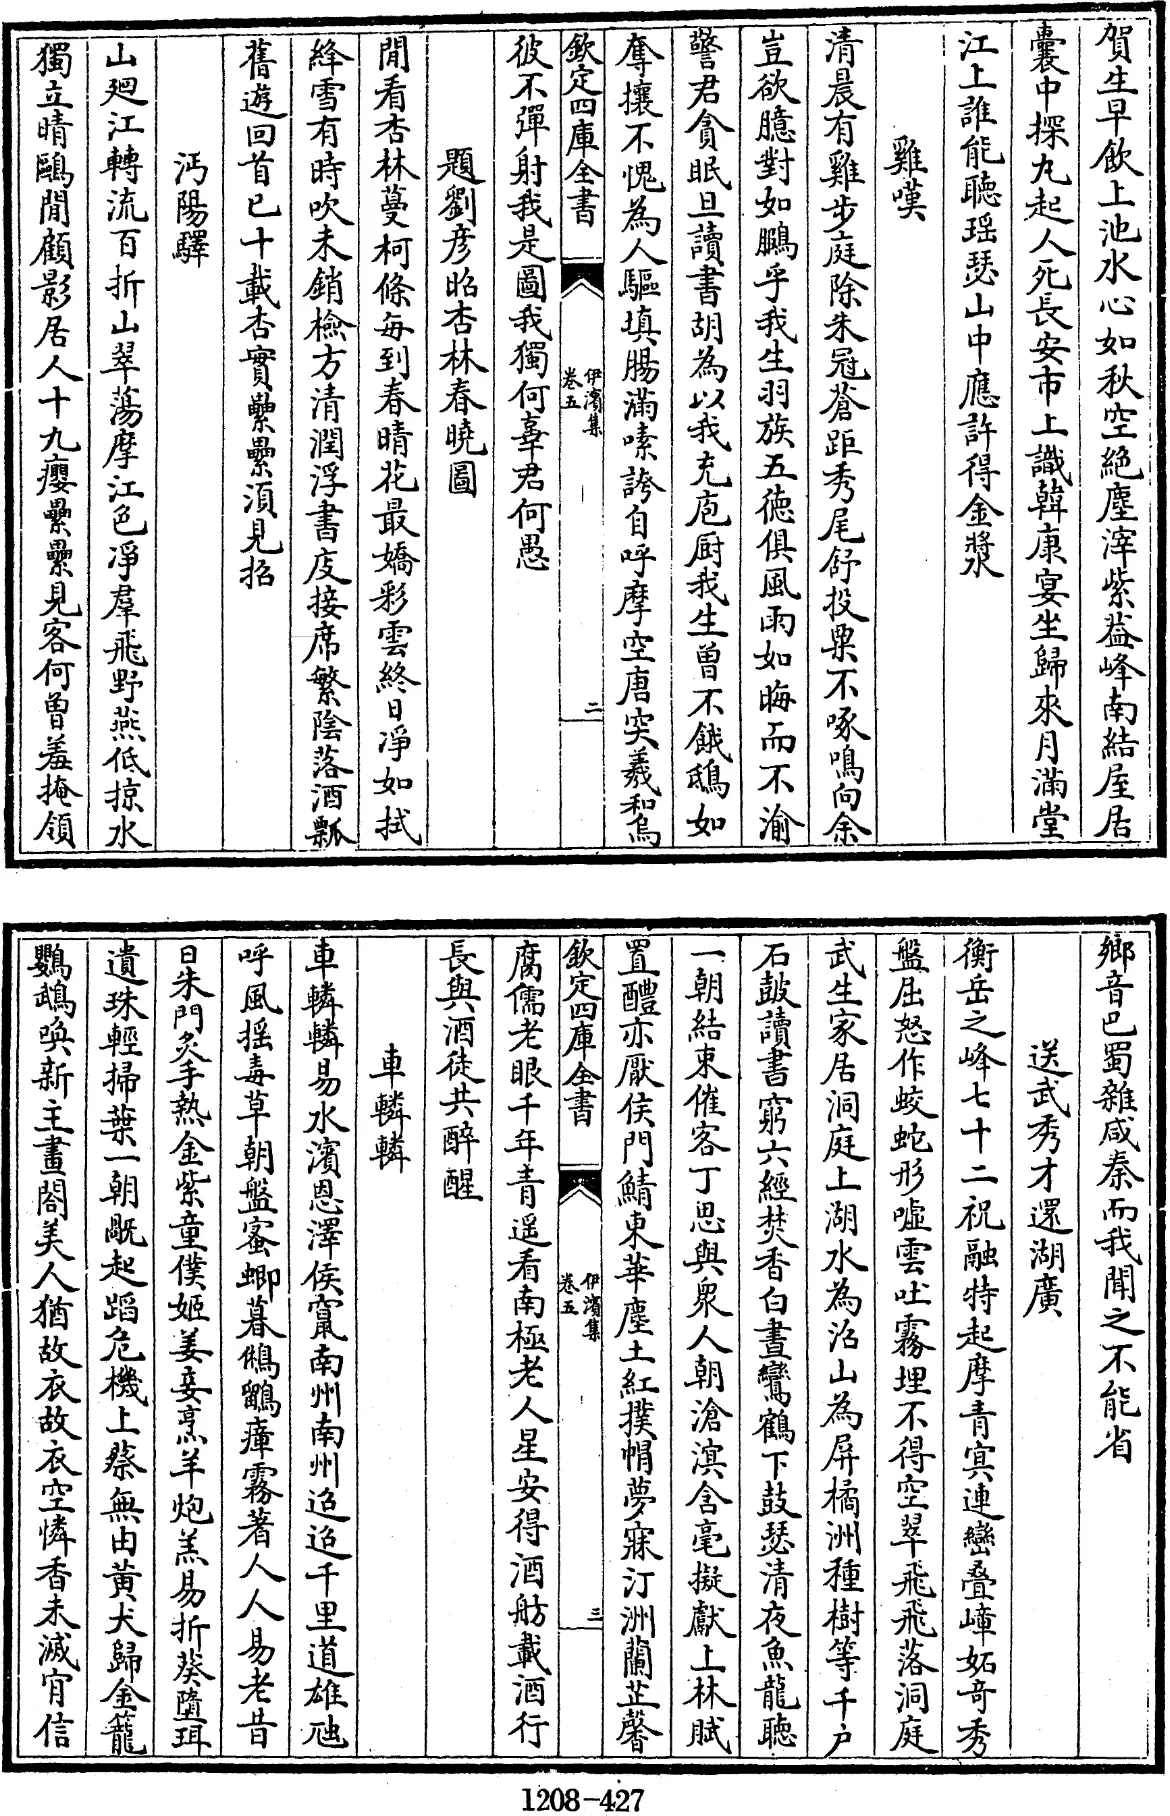 賀生早飲上池水心如秋空絶塵滓紫葢峰南結屋居
囊中探丸起人死長安市上識韓康宴坐歸來月滿堂
江上誰能聽瑶瑟山中應許得金漿
雞嘆
清晨有雞步庭除朱冠蒼距秀尾舒投粟不啄鳴向余
豈欲臆對如鵬乎我生羽族五徳俱風雨如晦而不渝
警君貪眠旦讀書胡為以我充庖厨我生曽不餓鴟如
奪攘不愧為人驅填腸滿嗉誇自呼摩空唐突羲和烏
欽定四庫全書
伊濱集
卷五
二
彼不彈射我是圖我獨何辜君何愚
題劉彦昭杏林春曉圖
閒看杏林蔓柯條每到春晴花最嬌彩雲終日凈如拭
絳雪有時吹未銷檢方清潤浮書庋接席繁陰落酒瓢
舊遊回首已十載杏實纍纍須見招
沔陽驛
山廻江轉流百折山翠蕩摩江色凈羣飛野燕低掠水
獨立晴鷗閒顧影居人十九癭纍纍見客何曽羞掩領
鄉音巴蜀雜咸秦而我聞之不能省
送武秀才還湖廣
衡岳之峰七十二祝融特起摩青㝠連巒叠嶂妬竒秀
盤屈怒作蛟蛇形噓雲吐霧埋不得空翠飛飛落洞庭
武生家居洞庭上湖水為沼山為屏橘洲種樹等千户
石鼓讀書窮六經焚香白晝鸞鶴下鼓瑟清夜魚龍聽
一朝結束催客丁思與衆人朝滄溟含毫擬獻上林賦
置醴亦厭侯門鯖東華塵土紅撲帽夢寐汀洲蘭芷馨
欽定四庫全書
伊濱集
卷五
三
腐儒老眼千年青遥看南極老人星安得酒舫載酒行
長與酒徒共醉醒
車轔轔
車轔轔易水濱恩澤侯竄南州南州迢迢千里道雄虺
呼風揺毒草朝盤蜜蝍暮鵂鶹瘴霧著人人易老昔
日朱門炙手熱金紫童僕姬姜妾烹羊炮羔易折葵墮珥
遺珠輕掃葉一朝戲起蹈危機上蔡無由黄犬歸金籠
鸚鵡喚新主畫閣美人猶故衣故衣空憐香未滅肯信
1208-427